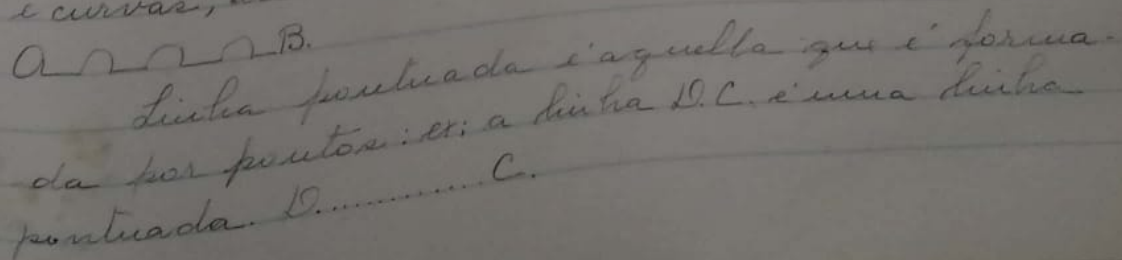 e curvas,
A B.
Linha pontuada é aquella que é forma-
da por pontos: ex: a linha D.C. é uma linha
pontuada. D.............C.